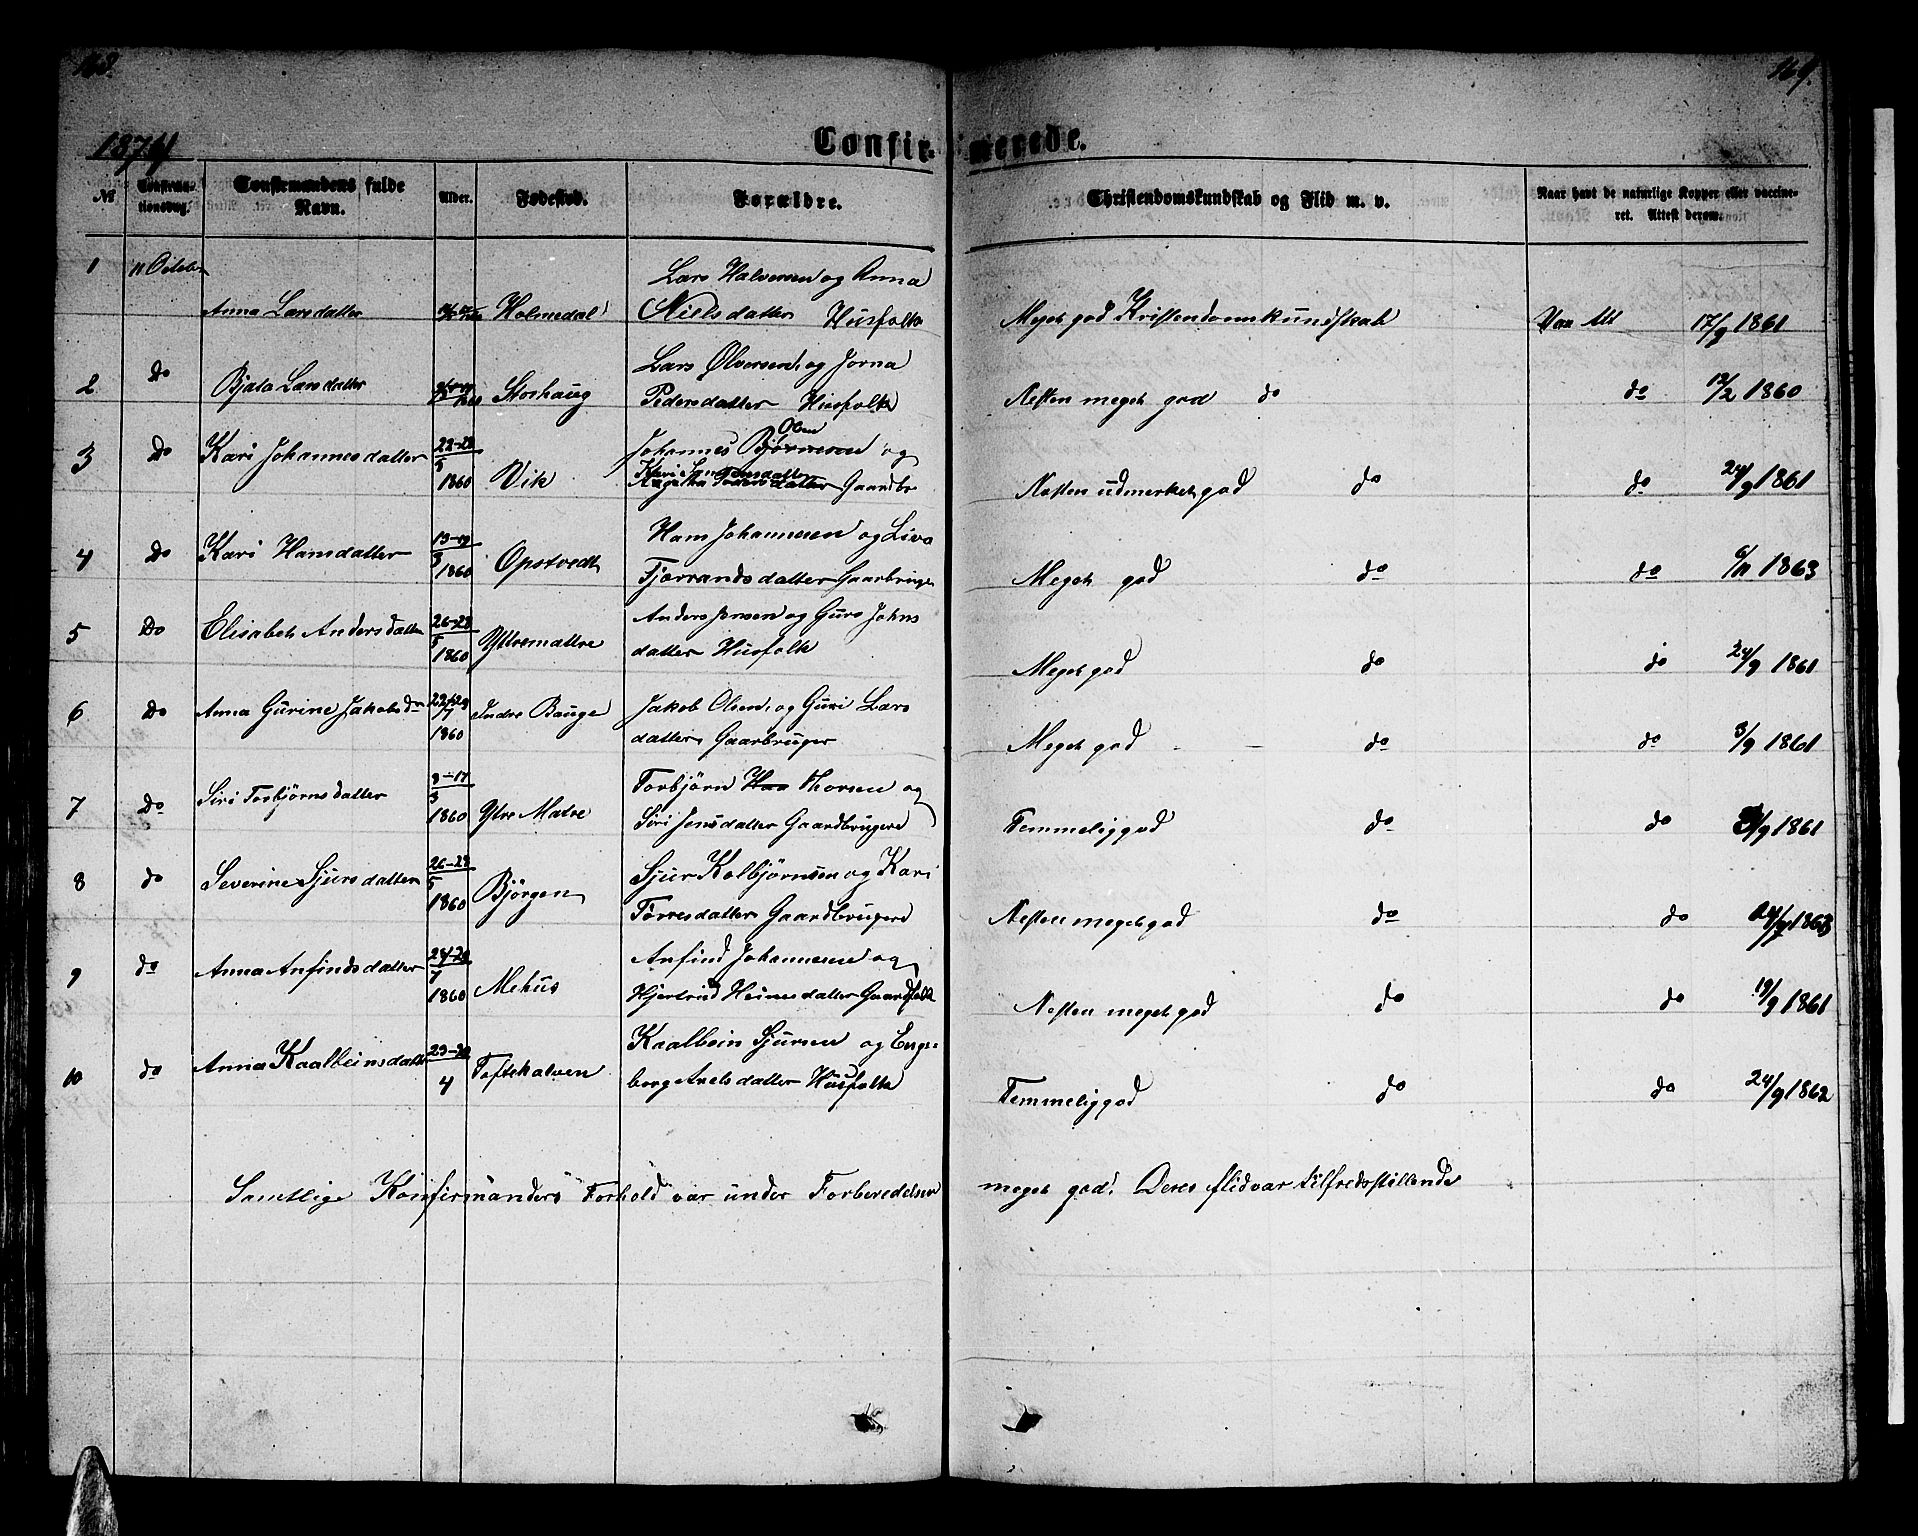 168. 169.
1874 Confirmerede.
No Confirmationsdag. Confirmandens fulde Navn. Alder. Fødested. Forældre. Christendomskundskab og Flid m. v. Naar havt de naturlige Kopper eller vaccineret. Attest derom.
1 11 Octobr Lars Halversen og Anna
Anna Larsdatter Holmedal Nielsdatter Husfolk Meget god Kristendomskundskab Vac Att 17/9 1861
2 Do Larsdatter Storhaug Lars Ølversen og Jorna
Pedersdatter Husfolk Nesten meget god do do 12/2 1860
3 Do Kari Johannesdatter 22-28/5 1860 Vik Johannes Bjørnesen Olsen og
Kari datter Gaardbr Nesten udmerket god do do 24/9 1861
4 Do Kari Hansdatter 13-19/3 1860 Opstvedt Hans Johannesen og Liva
Tjorrandsdatter Gaarbruger Meget god do do 6/11 1863
5 Do Elisabet Andersdatter 26-28/5 1860 Yttremattre Anders Jensen og Guro Johns
datter Husfolk Meget god do do 24/9 1861
6 Do Anna Gurine Jakobsdtr 1860 Indre Bauge Jakob Olsen og Guri Lars
datter Gaarbruger Meget god do do 3/9 1861
7 Do Siri Torbjørnsdatter 8-17/3 1860 Ytre Matre Torbjørn Thorsen og
Siri Jensdatter Gaardbrugere Temmelig god do do /9 1861
8 do Severine Sjursdatter 26-28/5 1860 Bjørgen Sjur Kolbjørnsen og Kari
Torresdatter Gaardbrugere Nesten meget god do do 1863
9 do Anna Anfindsdatter 1860 Mehus Anfind Johannesen og
Hjertrud Heinesdatter Gaardfolk Nesten meget god do do 19/9 1861
10 do Anna Kaalbeinsdatter 4 Toftekalven Kaalbein Sjursen og Enge
borg Axelsdatter Husfolk Temmelig god do do 24/9 1862
Samtlige Konfirmanders Forhold var under Forberedelsen meget god. Deres flid var tilfredsstillende